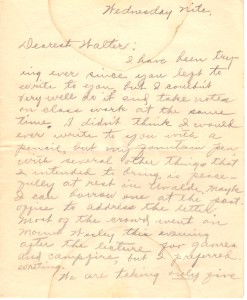 Wednesday nite.
Dearest Walter:
I have been try-
ing ever since you left to
write to you, but I couldn't
very well do it and take notes
on class work at the same
time. I didn't think I would
ever write to you with a
pencil, but my fountain pen
with several other things that
I intended to bring is peace-
fully at rest in Uvalde. Maybe
I can borrow one at the post-
office to address the letter.
Most of the crowd went on
Mount Wesley this evening
after the lecture for games
and campfire, but I preferred
writing.
We are taking only five